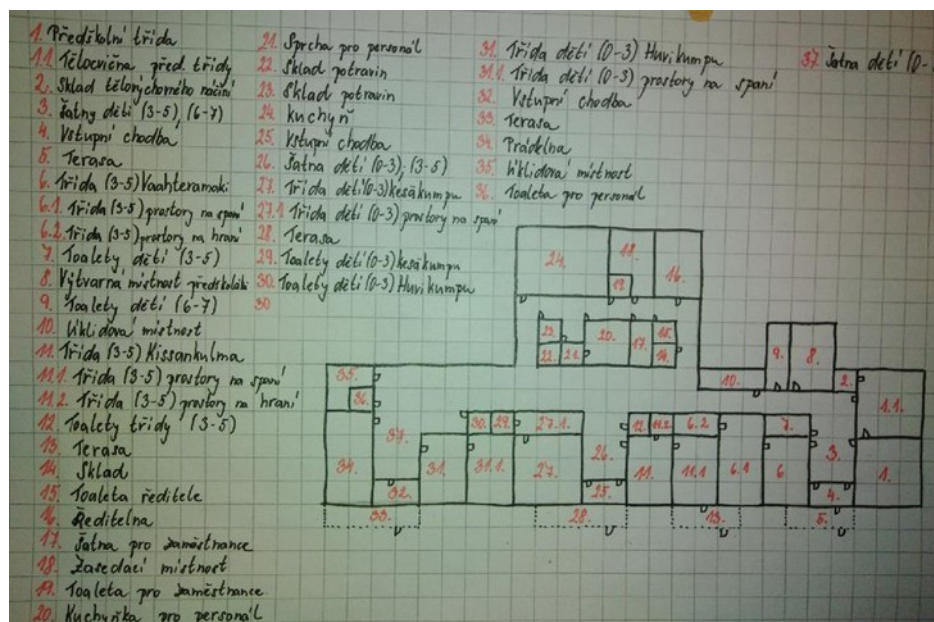 1. Předškolní třída
1.1. Tělocvična před. třídy
2. Sklad tělovýchovného náčiní
3. Šatny dětí (3-5), (6-7)
4. Vstupní chodba
5. Terasa
6. Třída (3-5) Vaahteramäki
6.1. Třída (3-5) prostory na spaní
6.2. Třída (3-5) prostory na hraní
7. Toalety dětí (3-5)
8. Výtvarná místnost předškoláků
9. Toalety dětí (6-7)
10. Úklidová místnost
11. Třída (3-5) Kissankulma
11.1. Třída (3-5) prostory na spaní
11.2. Třída (3-5) prostory na hraní
12. Toalety třídy (3-5)
13. Terasa
14. Sklad
15. Toaleta ředitele
16. Ředitelna
17. Šatna pro zaměstnance
18. Zasedací místnost
19. Toaleta pro zaměstnance
20. Kuchyňka pro personál
21. Sprcha pro personál
22. Sklad potravin
23. Sklad potravin
24. kuchyň
25. Vstupní chodba
26. Šatna dětí (0-3), (3-5)
27. Třída dětí (0-3) kesäkumpu
27.1 Třída dětí (0-3) prostory na spaní
28. Terasa
29. Toalety dětí (0-3) kesäkumpu
30. Toalety dětí (0-3) Huvikumpu
30
31. Třída dětí (0-3) Huvikumpu
31.1. Třída dětí (0-3) prostory na spaní
32. Vstupní chodba
33. Terasa
34. Prádelna
35. Úklidová místnost
36. Toaleta pro personál
37. Šatna dětí (0-
24. 18. 16.
19.
22. 20. 17. 15.
22. 21. 14.
9. 8.
10. 2.
35.
36.
1.1.
37. 30. 29. 27.1. 12. 11.2. 6.2 7.
34. 31. 31.1. 27. 26. 11. 11.1 6.1 6 3. 1.
32. 25. 4.
33. 28. 13. 5.